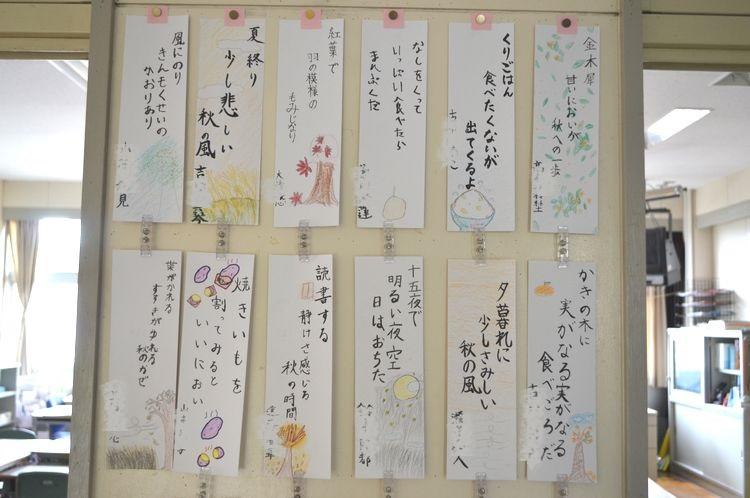 金木犀
甘いにおいが
秋への一歩
くりごはん
食べたくないが
出てくるよ
なしをくって
いっぱい食べたら
まんぷくだ
蓮
紅葉で
羽の模様の
もみじなり
夏終り
少し悲しい
秋の風
吉
琴
風にのり
きんもくせいの
かおりあり
見
かきの木に
実がなる実がなる
食べごろだ
夕暮れに
少しさみしい
秋の風
十五夜で
明るい夜空
日はおちた
都
読書する
静けさ感じる
秋の時間
焼きいもを
割ってみると
いいにおい
葉がかれる
すすきがゆれる
秋のかぜ
心